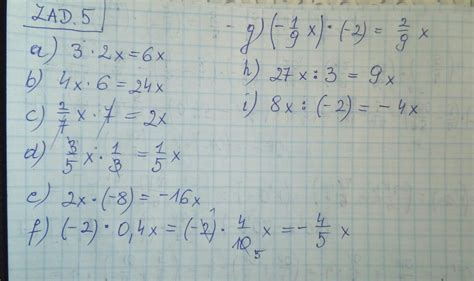 ZAD. 5
a) 3 · 2x = 6x
b) 4x · 6 = 24x
c) 2/7 x · 7 = 2x
d) 3/5 x · 1/3 = 1/5 x
e) 2x · (-8) = -16x
f) (-2) · 0,4x = (-2)1 · 4/10 5 x = - 4/5 x
g) (-1/9 x) · (-2) = 2/9 x
h) 27x : 3 = 9x
i) 8x : (-2) = -4x